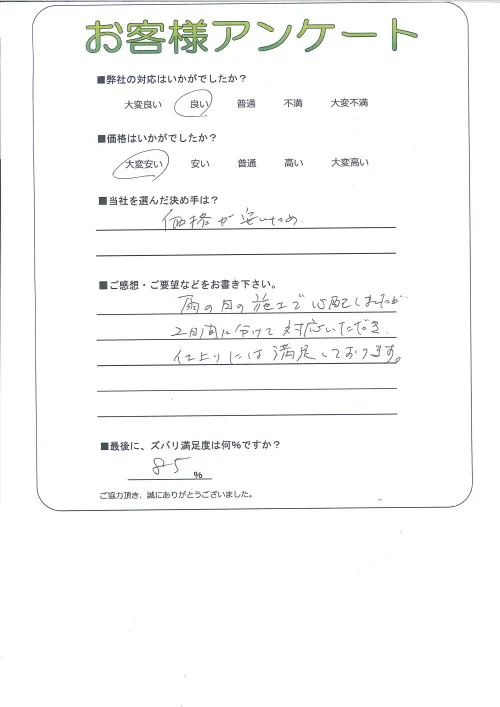 お客様アンケート
■弊社の対応はいかがでしたか？
大変良い 良い 普通 不満 大変不満
■価格はいかがでしたか？
大変安い 安い 普通 高い 大変高い
■当社を選んだ決め手は？
価格が安いため.
■ご感想・ご要望などをお書き下さい。
雨の日の施工で心配しましたが
2日間に分けて対応いただき.
仕上りには満足しております。
■最後に、ズバリ満足度は何%ですか？
85 %
ご協力頂き、誠にありがとうございました。